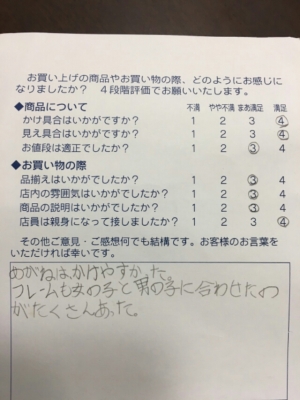 お買い上げの商品やお買い物の際、どのようにお感じに
なりましたか？ ４段階評価でお願いいたします。
◆商品について 不満 やや不満 まあ満足 満足
かけ具合はいかがですか？ 1 2 3 ④
見え具合はいかがですか？ 1 2 3 ④
お値段は適正でしたか？ 1 2 ③ 4
◆お買い物の際
品揃えはいかがでしたか？ 1 2 ③ 4
店内の雰囲気はいかがでしたか？ 1 2 ③ 4
商品の説明はいかがでしたか？ 1 2 ③ 4
店員は親身になって接しましたか？ 1 2 3 ④
その他ご意見・ご感想何でも結構です。お客様のお言葉を
いただければ幸いです。
めがねは、かけやすかった。
フレームも女の子と男の子に合わせたの
がたくさんあった。